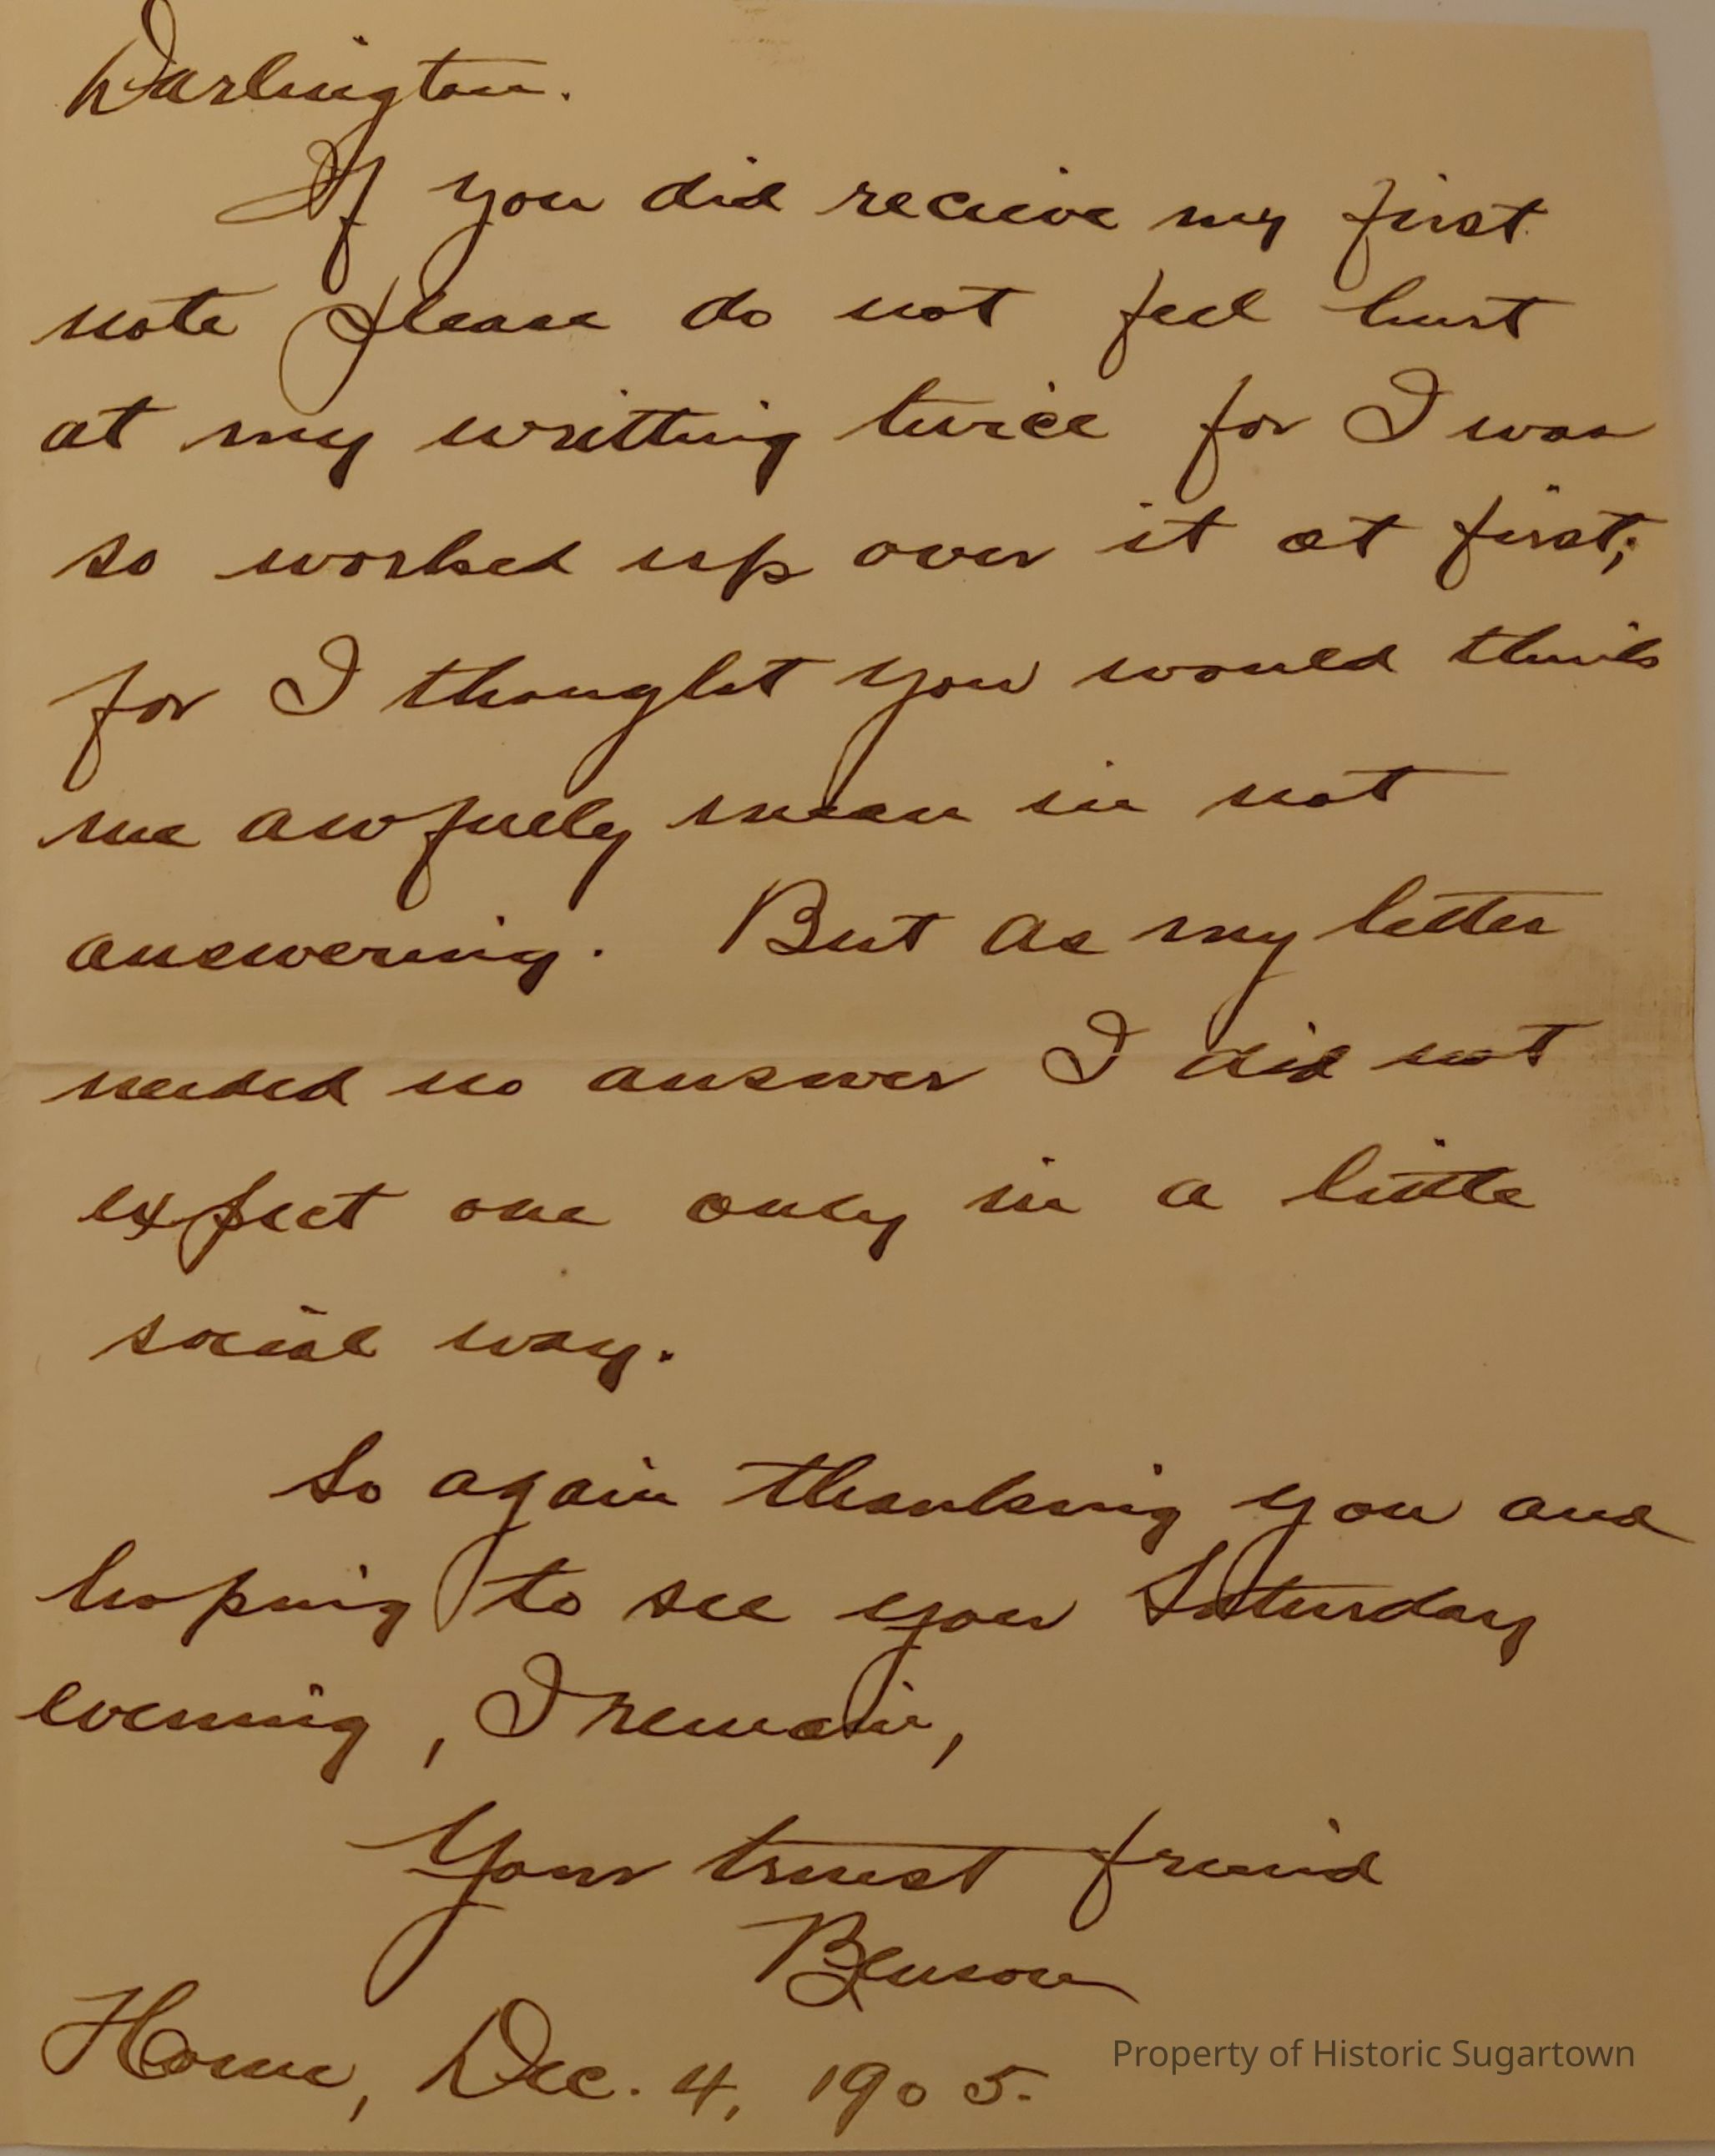 Darlington.
If you did recieve my first
note please do not feel hurt
at my writting twice for I was
so worked up over it at first;
for I thought you would think
me awfully mean in not
answering. But as my letter
needed no answer I did not
expect one only in a little
social way.
So again thanking you and
hoping to see you Saturday
evening, I remain,
Your truest friend
Benson
Home, Dec. 4, 1905.
Property of Historic Sugartown